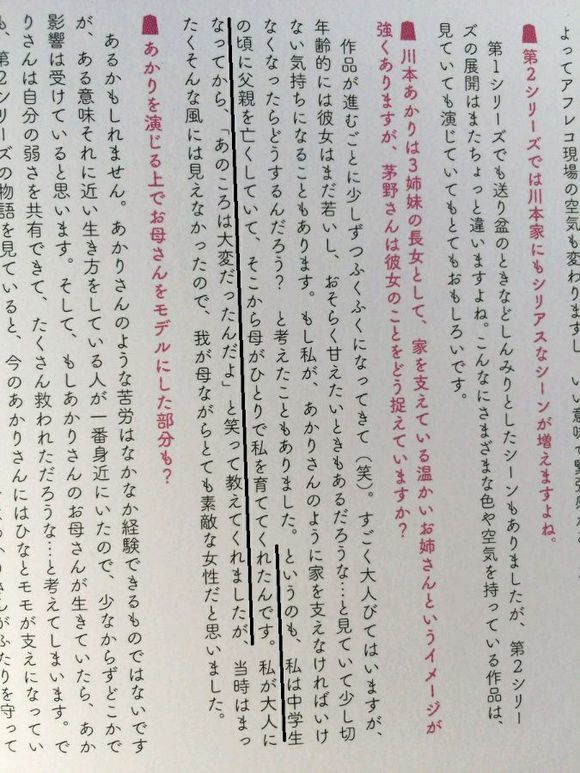 よってアフレコ現場の空気も変わりますし、いい意味で緊張
第２シリーズでは川本家にもシリアスなシーンが増えますよね。
第１シリーズでも送り盆のときなどしんみりとしたシーンもありましたが、第２シリー
ズの展開はまたちょっと違いますよね。こんなにさまざまな色や空気を持っている作品は、
見ていても演じていてもとてもおもしろいです。
川本あかりは３姉妹の長女として、家を支えている温かいお姉さんというイメージが
強くありますが、茅野さんは彼女のことをどう捉えていますか？
作品が進むごとに少しずつふくふくになってきて（笑）。すごく大人びてはいますが、
年齢的には彼女はまだ若いし、おそらく甘えたいときもあるだろうな…と見ていて少し切
ない気持ちになることもあります。もし私が、あかりさんのように家を支えなければいけ
なくなったらどうするんだろう？　と考えたこともありました。というのも、私は中学生
の頃に父親を亡くしていて、そこから母がひとりで私を育ててくれたんです。私が大人に
なってから、「あのころは大変だったんだよ」と笑って教えてくれましたが、当時はまっ
たくそんな風には見えなかったので、我が母ながらとても素敵な女性だと思いました。
あかりを演じる上でお母さんをモデルにした部分も？
あるかもしれません。あかりさんのような苦労はなかなか経験できるものではないです
が、ある意味それに近い生き方をしている人が一番身近にいたので、少なからずどこかで
影響は受けていると思います。そして、もしあかりさんのお母さんが生きていたら、あか
りさんは自分の弱さを共有できて、たくさん救われただろうな…と考えてしまいます。で
も、第２シリーズの物語を見ていると、今のあかりさんにはひなとモモが支えになってい
がふたりを守って